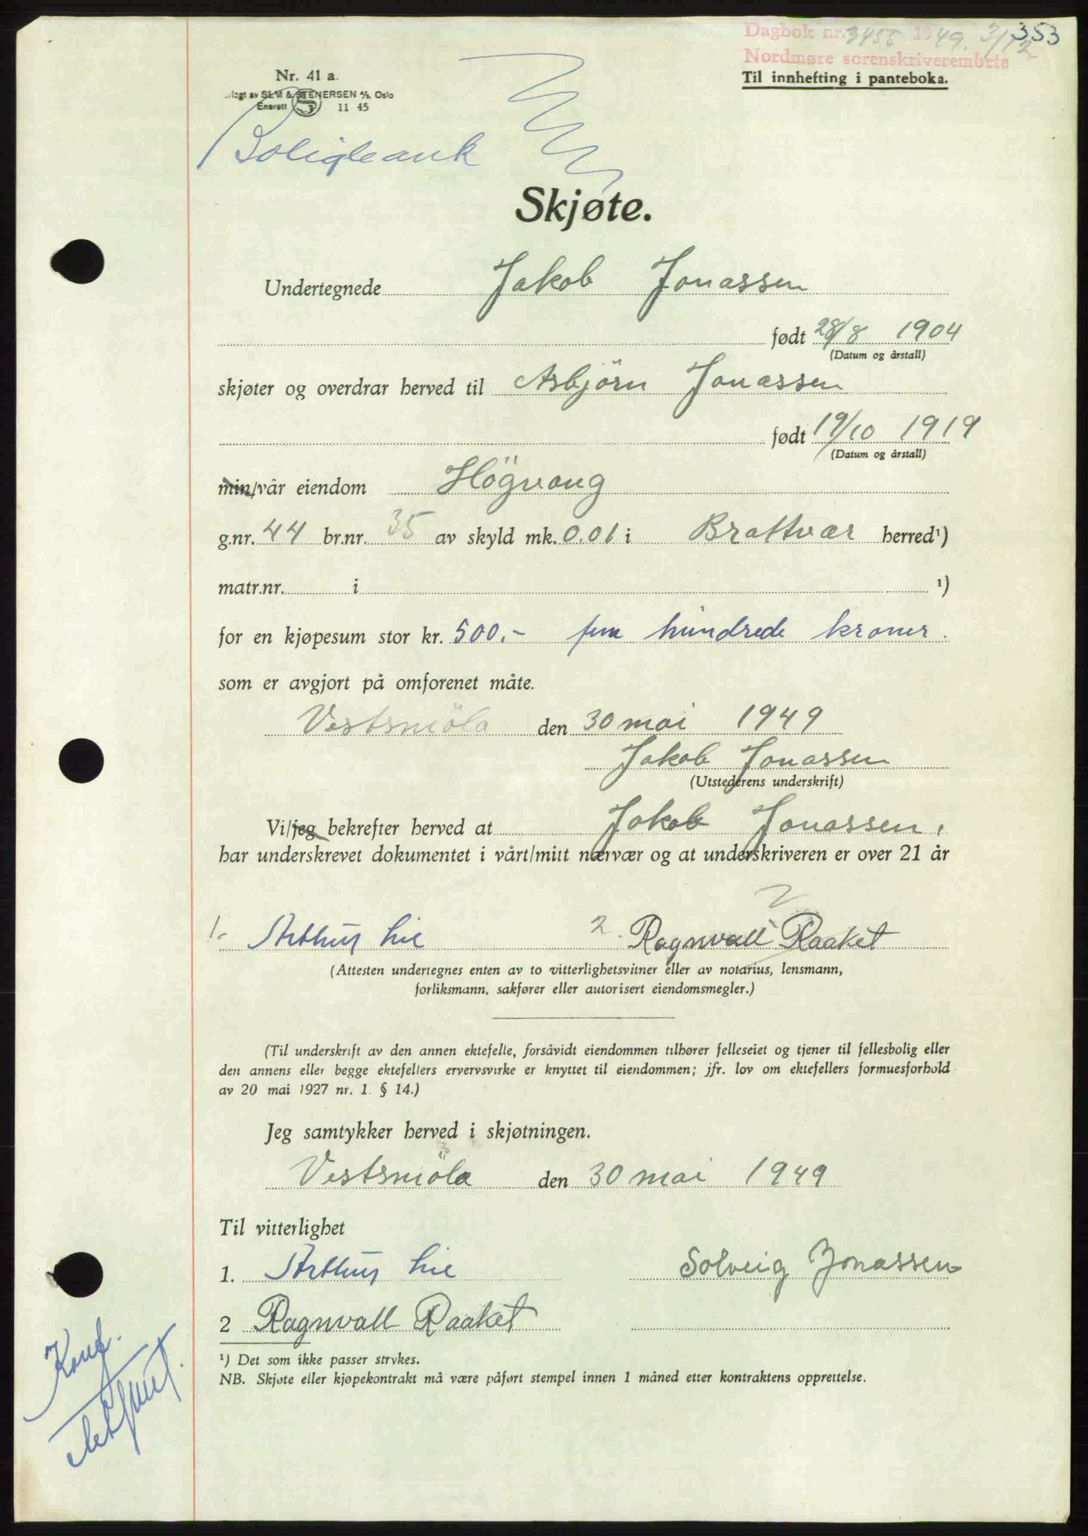 Dagbok nr. 3455 1949. 3/12 353
Nordmøre sorenskriverembete
Til innhefting i panteboka.
Nr. 41 a.
SEM & STENERSEN A/S, Oslo
Enerett S 11 45
Boligbank
Skjøte.
Undertegnede Jakob Jonassen
født 28/8 1904
(Datum og årstall)
skjøter og overdrar herved til Asbjörn Jonassen
født 19/10 1919
(Datum og årstall)
min/vår eiendom Högvang
g.nr. 44 br.nr. 35 av skyld mk. 0.01 i Brattvær herred¹)
matr.nr. i ¹)
for en kjøpesum stor kr. 500.- fem hundrede kroner.
som er avgjort på omforenet måte.
Vestsmöla den 30 mai 1949
Jakob Jonassen
(Utstederens underskrift)
Vi/jeg bekrefter herved at Jakob Jonassen,
har underskrevet dokumentet i vårt/mitt nærvær og at underskriveren er over 21 år
1. Arthur Lie 2. Ragnvall Raaket
(Attesten undertegnes enten av to vitterlighetsvitner eller av notarius, lensmann,
forliksmann, sakfører eller autorisert eiendomsmegler.)
(Til underskrift av den annen ektefelle, forsåvidt eiendommen tilhører felleseiet og tjener til fellesbolig eller
den annens eller begge ektefellers ervervsvirke er knyttet til eiendommen; jfr. lov om ektefellers formuesforhold
av 20 mai 1927 nr. 1. § 14.)
Jeg samtykker herved i skjøtningen.
Vestsmöla den 30 mai 1949
Til vitterlighet
1. Arthur Lie Solveig Jonassen
2 Ragnvall Raaket
¹) Det som ikke passer strykes.
NB. Skjøte eller kjøpekontrakt må være påført stempel innen 1 måned etter kontraktens opprettelse.
Konf.